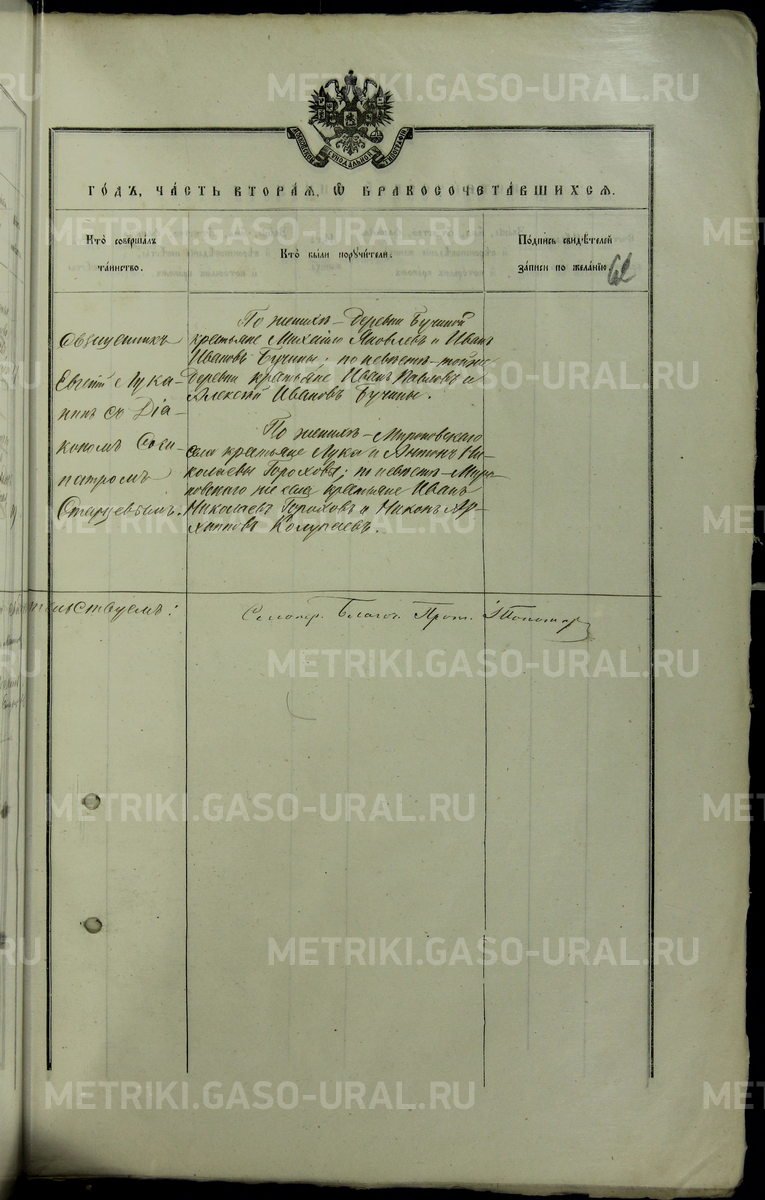 METRIKI.GASO-URAL.RU
МОСКОВСКОЙ СУНОДАЛЬНОЙ ТИПОГРАФІИ
ГОДЪ, ЧАСТЬ ВТОРАЯ, Ѡ БРАКОСОЧЕТАВШИХСЯ.
Кто совершалъ
таинство.
Кто были поручители.
Подпись свидѣтелей
записи по желанію.
62
Священникъ
Евгеній Лука-
нинъ съ Діа-
кономъ Соси-
патромъ
Старцевымъ.
По женихѣ – деревни Бучиной
крестьяне Михаило Яковлевъ и Иванъ
Ивановъ Бучины; по невѣстѣ – тойже
деревни крестьяне Иванъ Павловъ и
Алексѣй Ивановъ Бучины.
По женихѣ – Мироновскаго
села крестьяне Лука и Антонъ Ни-
колаевы Гороховы; по невѣстѣ – Миро-
новскаго же села крестьяне Иванъ
Николаевъ Гороховъ и Никонъ Ар-
хиповъ Колугаевъ.
тельствуемъ:
Благоч. Прот.
METRIKI.GASO-URAL.RU
METRIKI.GASO-URAL.RU
METRIKI.GASO-URAL.RU
METRIKI.GASO-URAL.RU
METRIKI.GASO-URAL.RU
METRIKI.GASO-URAL.RU